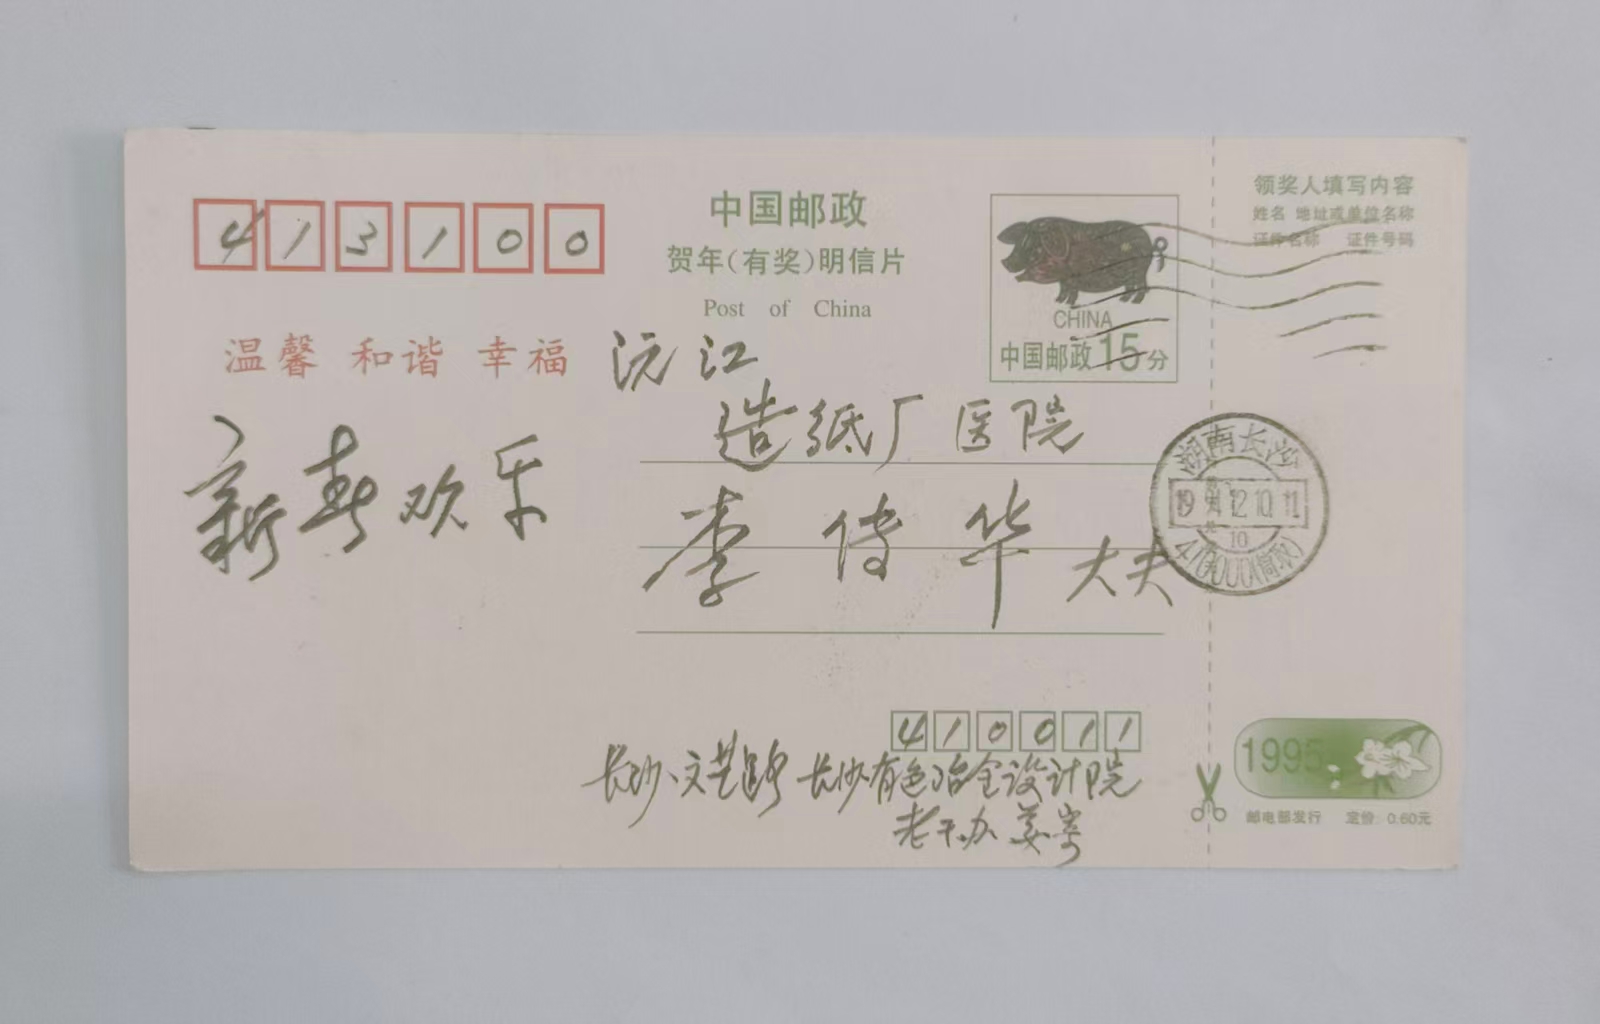 413100
中国邮政
贺年(有奖)明信片
Post of China
CHINA
中国邮政15分
领奖人填写内容
姓名 地址或单位名称
证件名称 证件号码
温馨 和谐 幸福
新春欢乐
沅江
造纸厂医院
李传华大夫
湖南长沙
12.10.11
10
410011
长沙·文艺路 长沙有色冶金设计院
老干办 姜寄
1995
邮电部发行 定价 0.60元